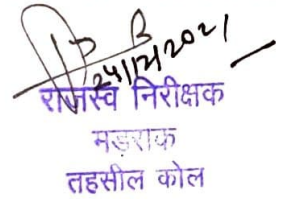 24/12/2021
राजस्व निरीक्षक
मड़राक
तहसील कोल